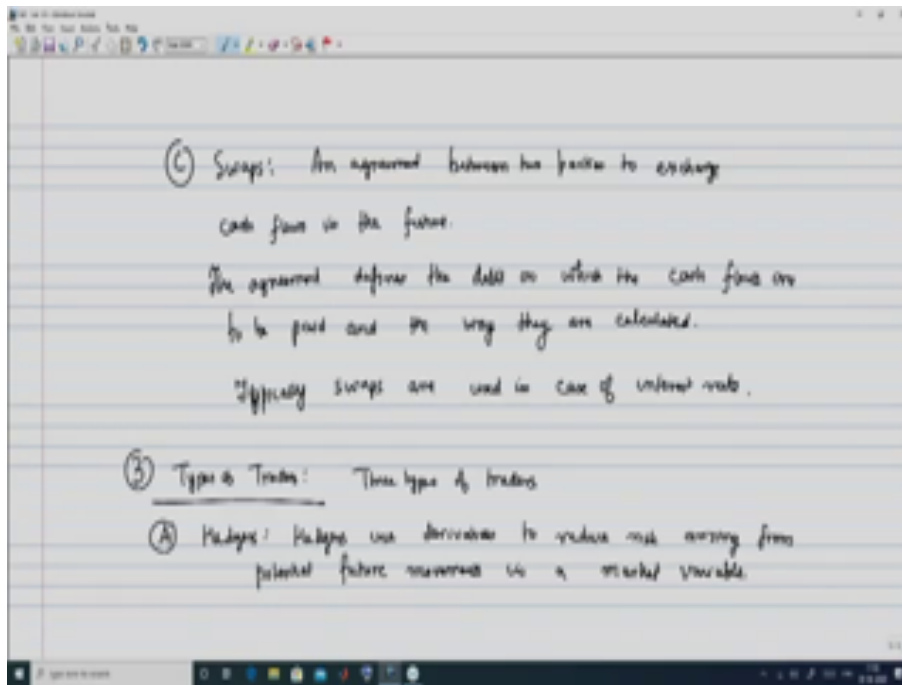 Ⓒ Swaps: An agreement between two parties to exchange
cash flows in the future.
The agreement defines the dates on which the cash flows are
to be paid and the way they are calculated.
Typically swaps are used in case of interest rate.
③ Types of Traders: Three types of traders
Ⓐ Hedgers: Hedgers use derivatives to reduce risk arising from
potential future movements in a market variable.